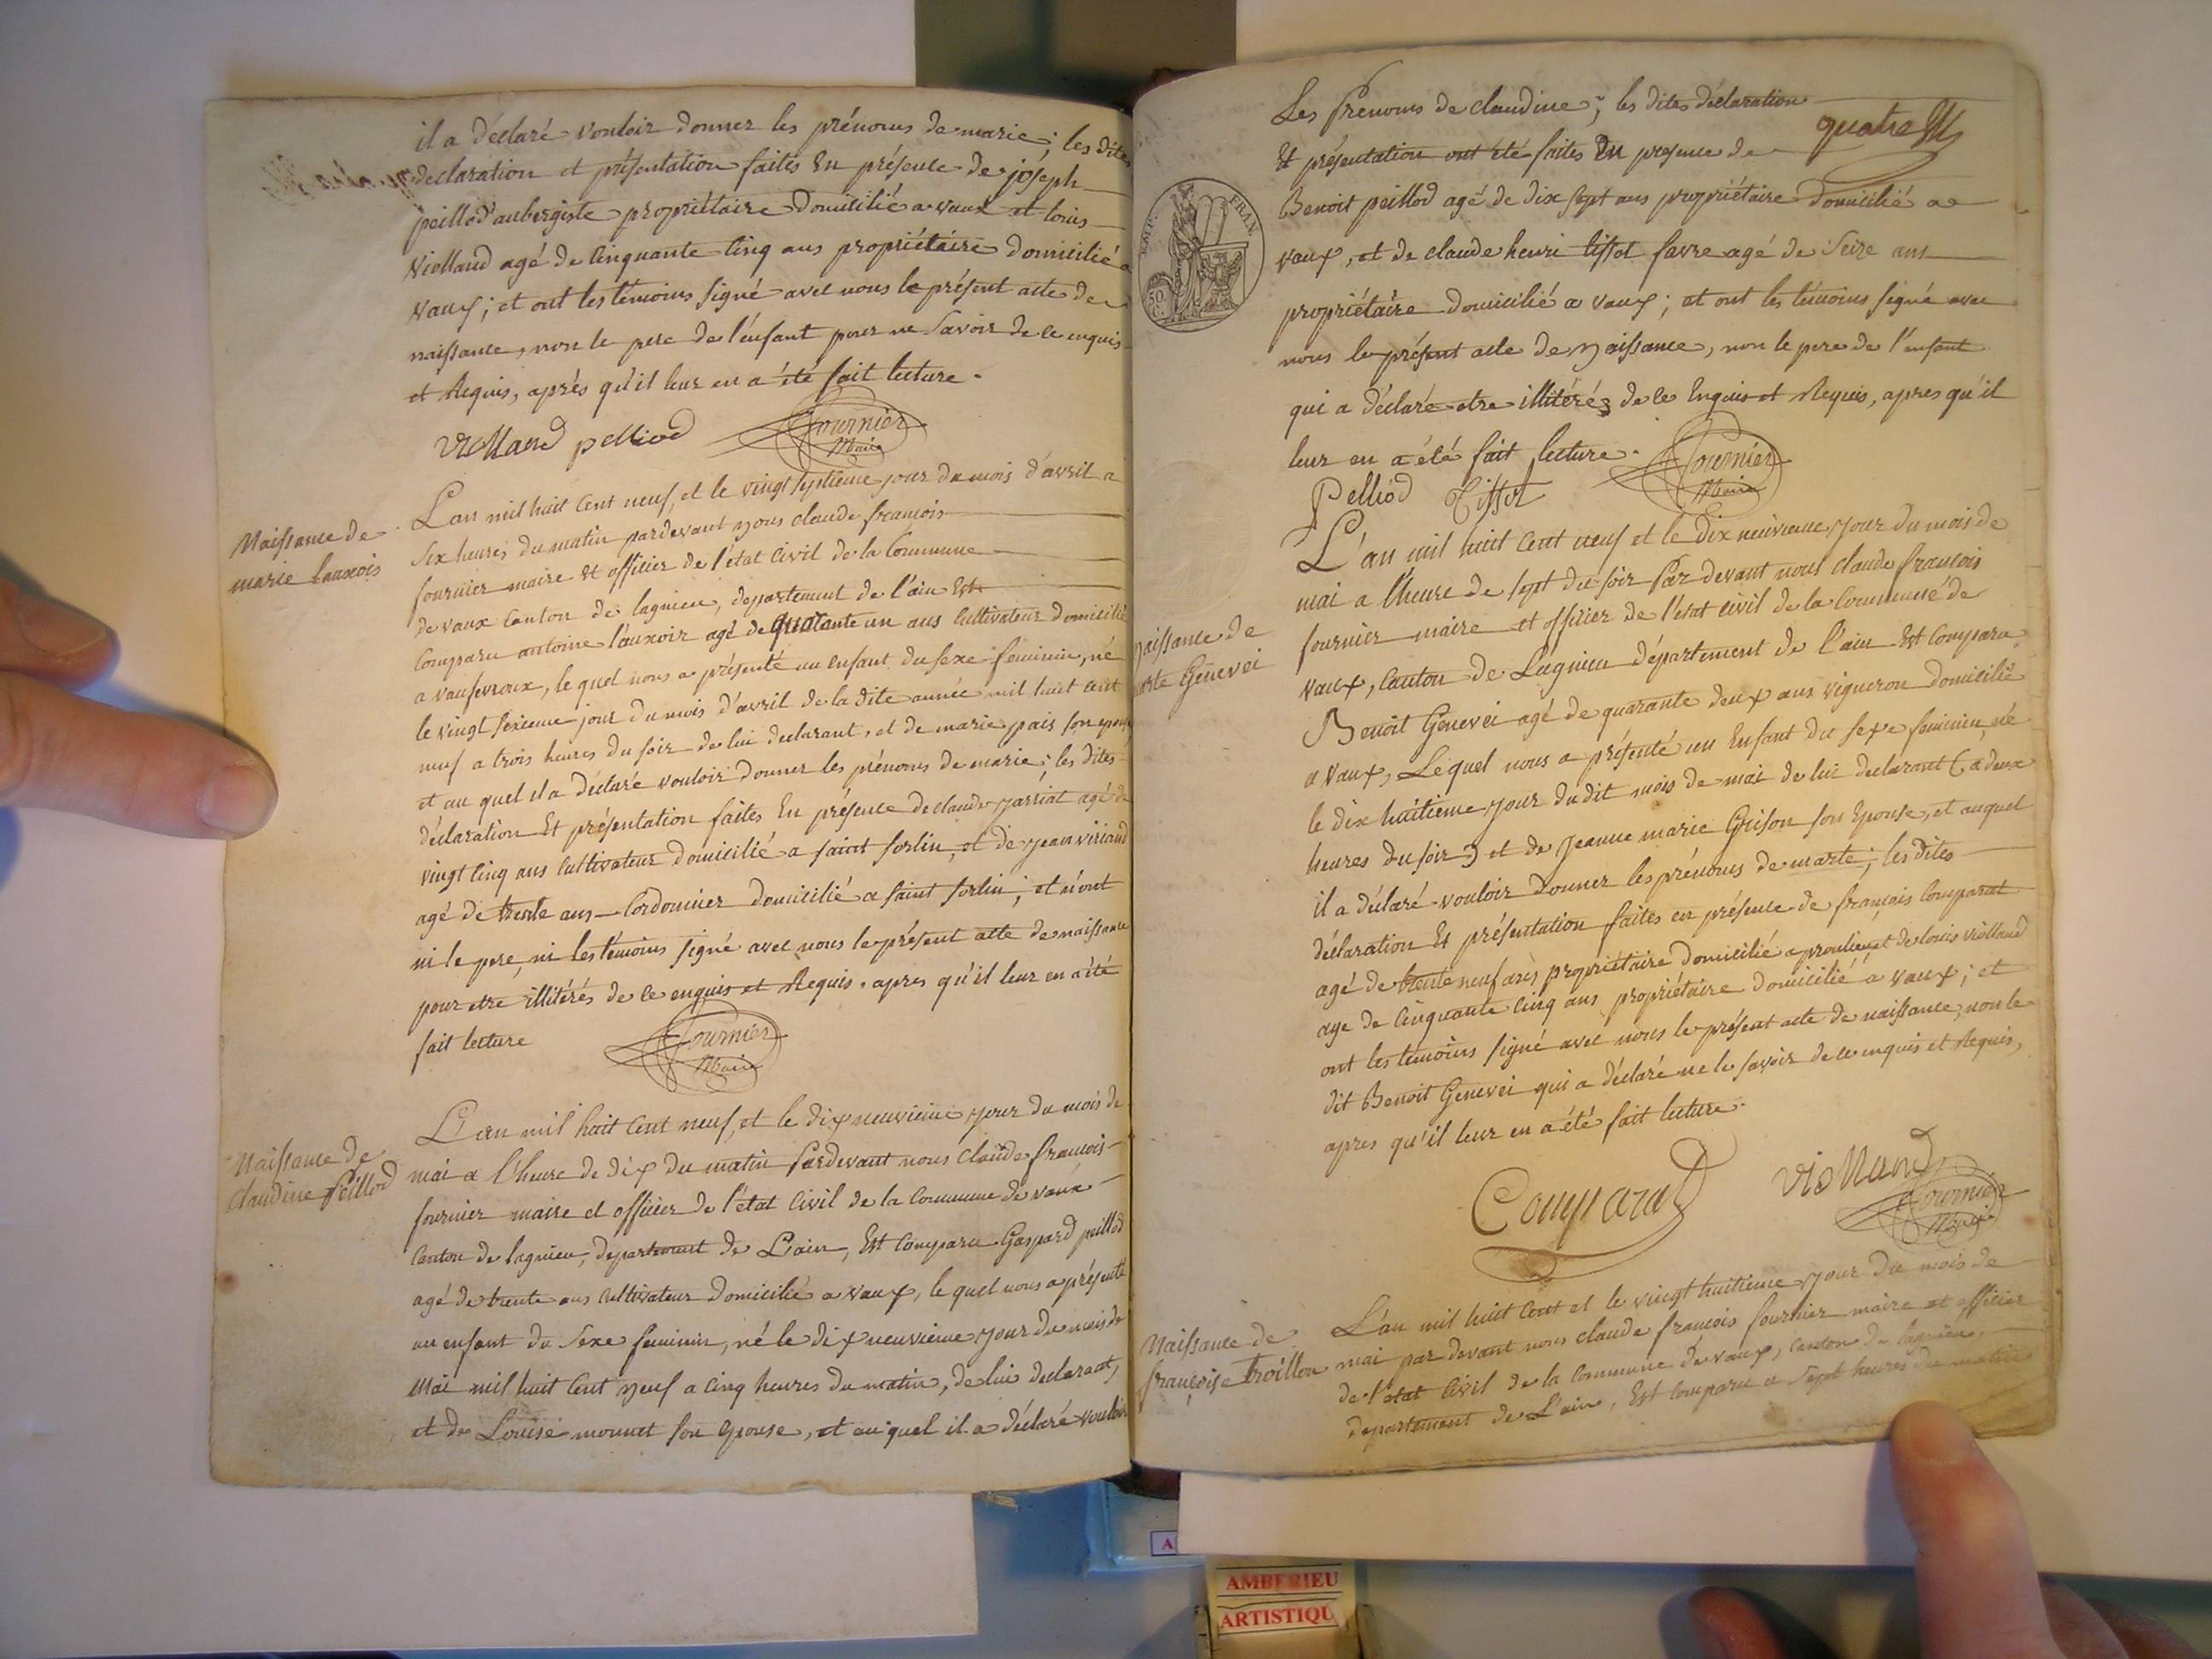 il a déclaré vouloir donner les prénoms de marie; les dites
declaration et présentation faites En présence de joseph
peillod aubergiste propriétaire domicilié a vaux et louis
Violland agé de Cinquante Cinq ans propriétaire domicilié a
vaux; et ont les témoins signé avec nous le présent acte de
naissance, non le pere de l'enfant pour ne savoir de ce enquis
et Requis, après qu'il leur en a été fait lecture.
violland pelliod Fournier
Maire
Naissance de
marie lauxois
L'an mil huit Cent neuf, et le vingt septieme jour du mois d'avril a
Six heures du matin pardevant nous claude françois
fournier maire Et officier de l'état Civil de la Commune
de vaux Canton de lagnieu, departement de l'ain Est
Comparu antoine lauxois agé de quarante un ans Cultivateur domicilié
a vaufevroux, le quel nous a présenté un enfant du sexe feminin, né
le vingt sixieme jour du mois d'avril de la dite année mil huit cent
neuf a trois heures du soir de lui declarant, et de marie pais son epouse
et au quel il a déclaré vouloir donner les prénoms de marie; les dites
déclaration Et présentation faites En présence de claude jarriat agé de
vingt Cinq ans Cultivateur domicilié a saint sorlin, et de jean viriand
agé de trente ans Cordonnier domicilié a saint sorlin; et n'ont
ni le pere, ni les témoins signé avec nous le présent acte de naissance
pour etre illitérés de ce enquis et Requis, apres qu'il leur en a été
fait lecture
Fournier
Maire
Naissance de
Claudine Peillod
L'an mil huit Cent neuf, et le dix neuvieme jour du mois de
mai a l'heure de dix du matin Pardevant nous Claude françois
fournier maire et officier de l'état Civil de la Commune de vaux
Canton de lagnieu, departement de L'ain, Est Comparu Gaspard peillod
agé de trente ans Cultivateur domicilié a vaux, le quel nous a présenté
un enfant du Sexe feminin, né le dix neuvieme jour du mois de
Mai mil huit Cent neuf a cinq heures du matin, de lui declarant,
et de Louise monnet son epouse, et au quel il a déclaré vouloir
Les Prenoms de claudine; les dites déclaration
quatre
Et présentation ont été faites En presence de
Benoit peillod agé de dix sept ans propriétaire domicilié a
vaux, et de claude henri tissot favre agé de Seize ans
propriétaire domicilié a vaux; et ont les témoins signé avec
nous le présent acte de naissance, non le pere de l'enfant
qui a déclaré etre illitéré de ce Enquis et Requis, apres qu'il
leur en a été fait lecture.
Pelliod Tissot Fournier
Maire
EMP. FRAN.
50 C.
naissance de
marte Genevei
L'an mil huit Cent neuf et le dix neuvieme jour du mois de
mai a l'heure de sept du soir Par devant nous claude françois
fournier maire et officier de l'état civil de la Commune de
vaux, Canton de Lagnieu département de l'ain Est Comparu
Benoit Genevei agé de quarante deux ans vigneron domicilié
a vaux, Lequel nous a présenté un Enfant du sexe feminin, né
le dix huitieme jour du dit mois de mai de lui declarant (a deux
heures du soir) et de Jeanne marie Grison son Epouse, et auquel
il a déclaré vouloir donner les prénoms de marte; les dites
déclaration Et présentation faites en présence de françois Comparat
agé de trente neuf ans propriétaire domicilié a proulieu et de louis violland
age de Cinquante Cinq ans propriétaire domicilié a vaux; et
ont les temoins signé avec nous le présent acte de naissance, non le
dit Benoit Genevei qui a déclaré ne le savoir de ce enquis et Requis,
apres qu'il leur en a été fait lecture.
Comparat violland
Fournier
Maire
Naissance de
françoise Troillon
L'an mil huit Cent et le vingt huitieme jour du mois de
mai par devant nous claude françois fournier maire et officier
de l'état Civil de la Commune de vaux, Canton de lagnieu,
departement de L'ain, Est Comparu a Sept heures du matin
A
AMBERIEU
ARTISTIQU